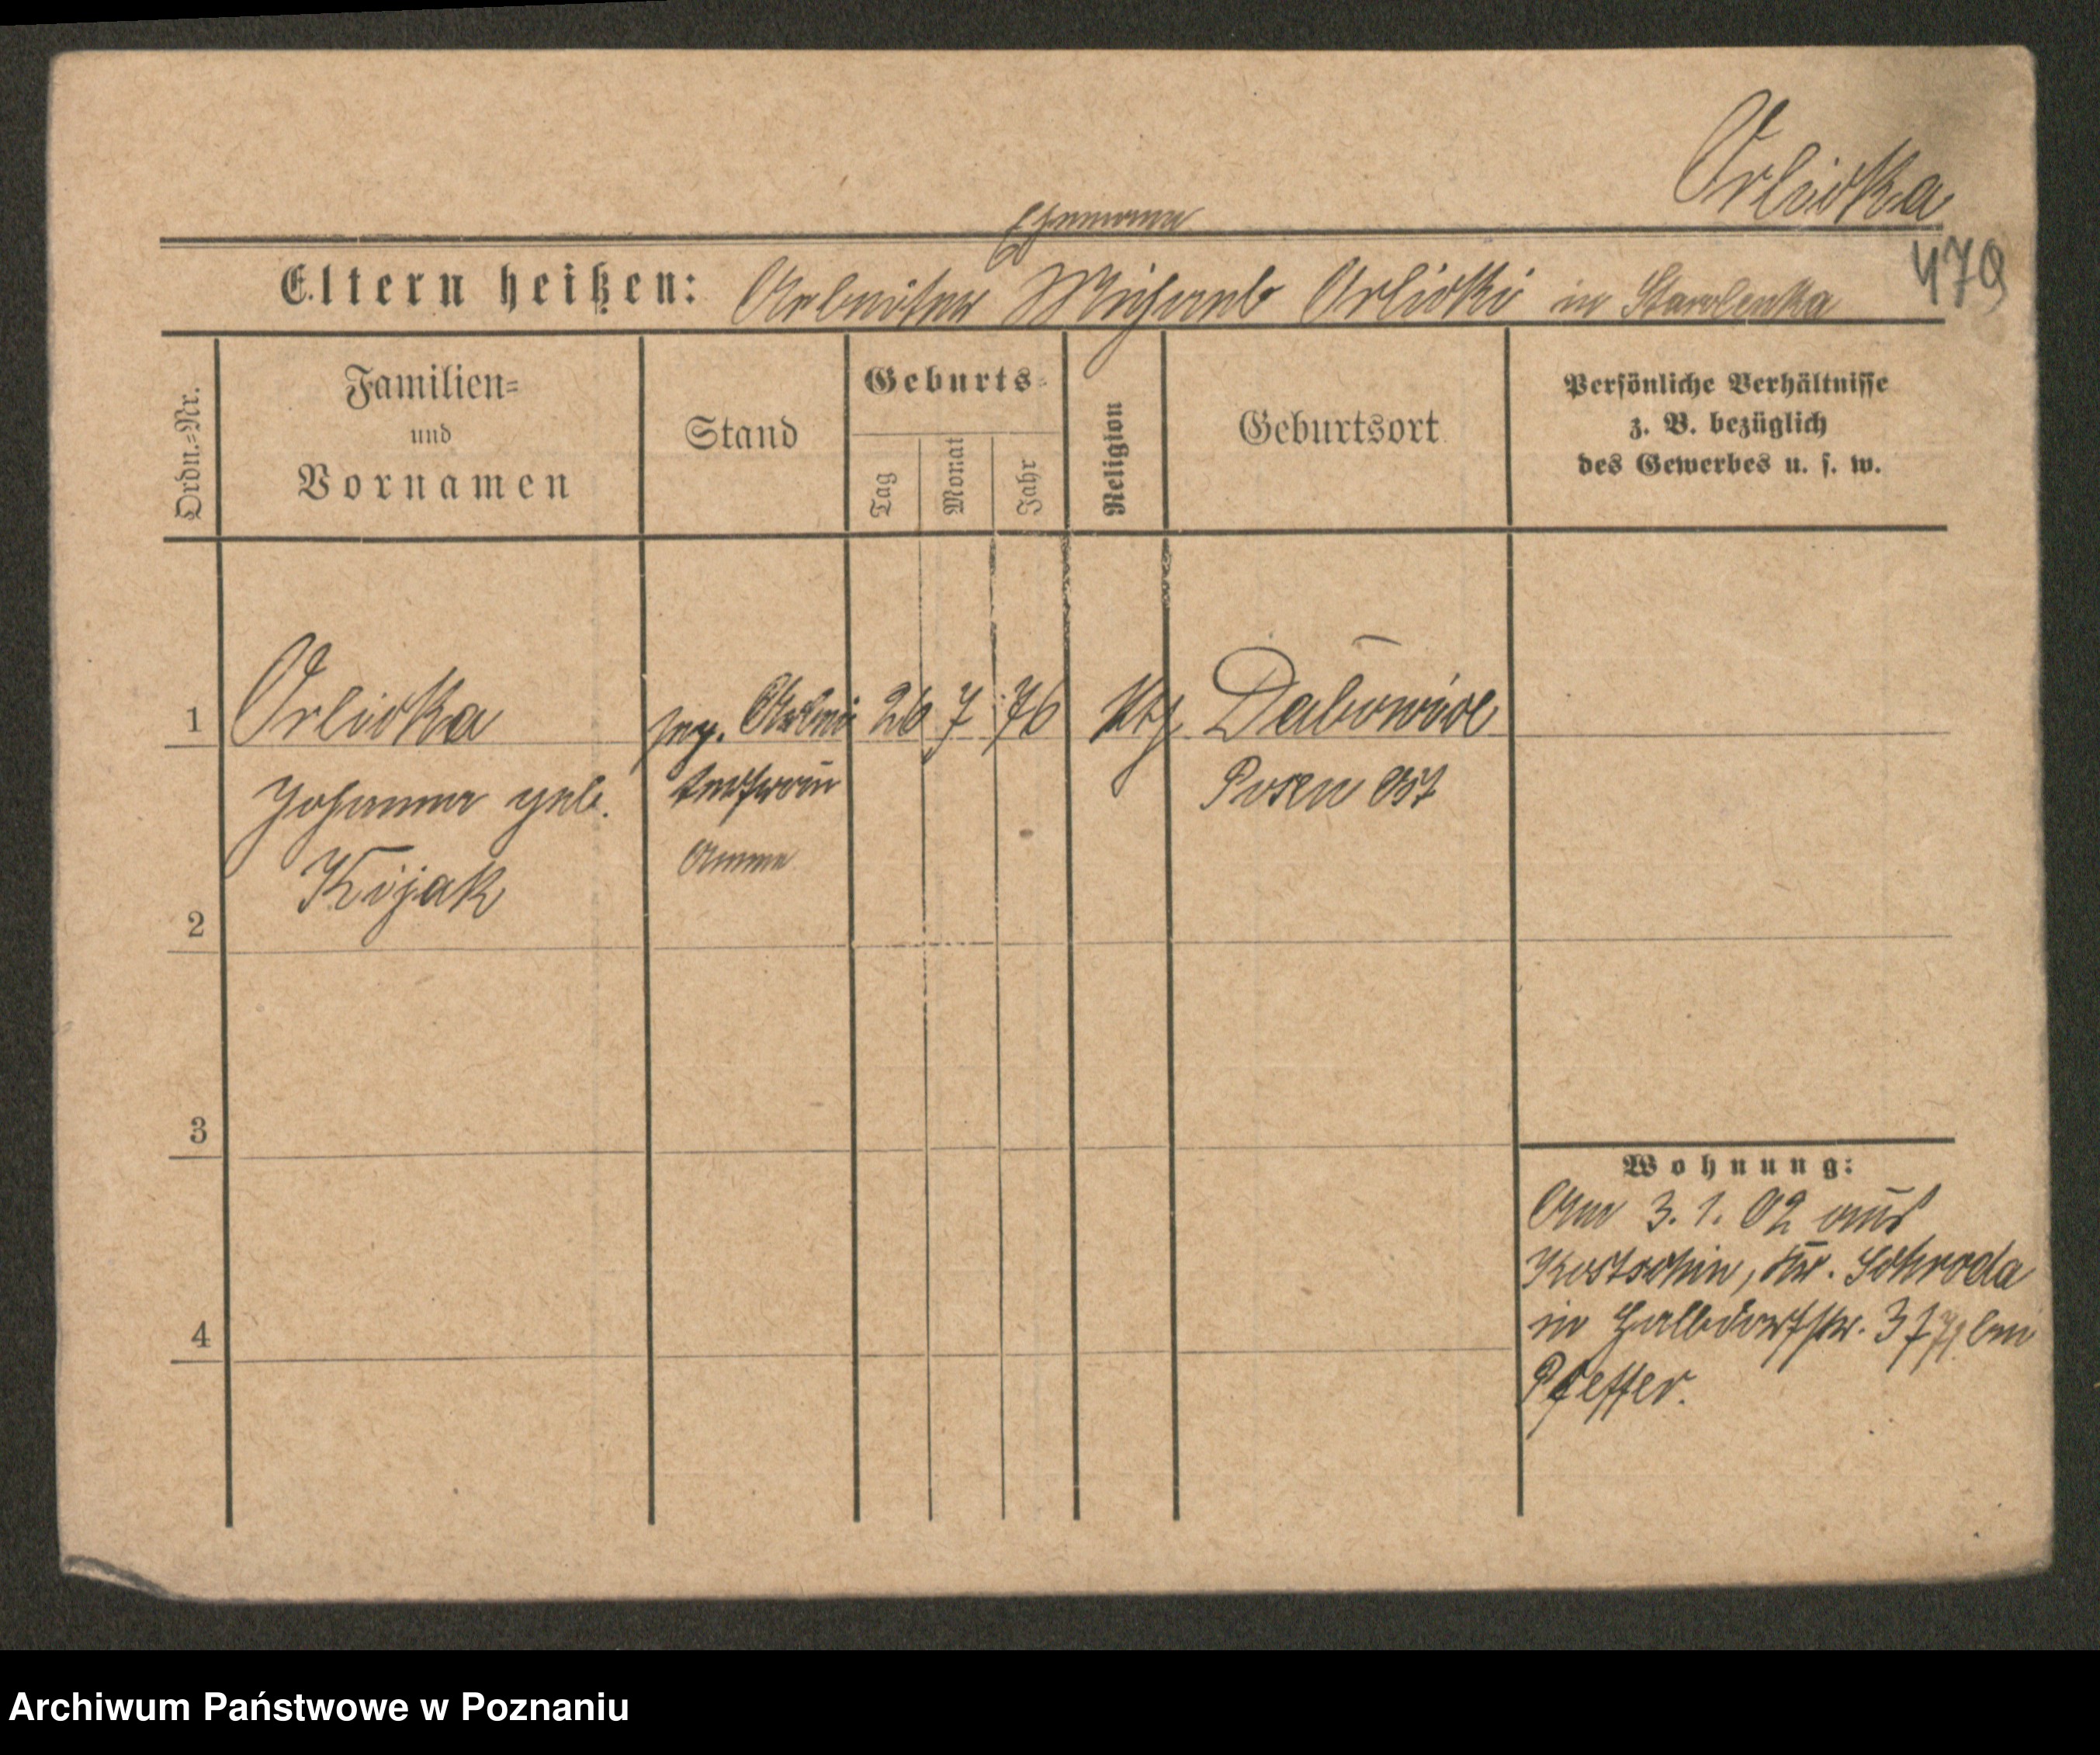 Orlicka
Ehemann
479
Eltern heißen: Arbeiter Michael Orlicki in Starolenka
Ordn.=Nr.
Familien=
und
Vornamen
Stand
Geburts=
Tag
Monat
Jahr
Religion
Geburtsort
Persönliche Verhältnisse
z. B. bezüglich
des Gewerbes u. s. w.
1 Orlicka Arbei 26 7 76 Ktj
Johanna geb. terfrau Posen Ost
Amme
Kijak
2
3
Wohnung:
Am 3. 1. 02 aus
Kostschin, Kr. Schroda
4
in Halbdorfstr. 37 bei
Pfeffer.
Archiwum Państwowe w Poznaniu